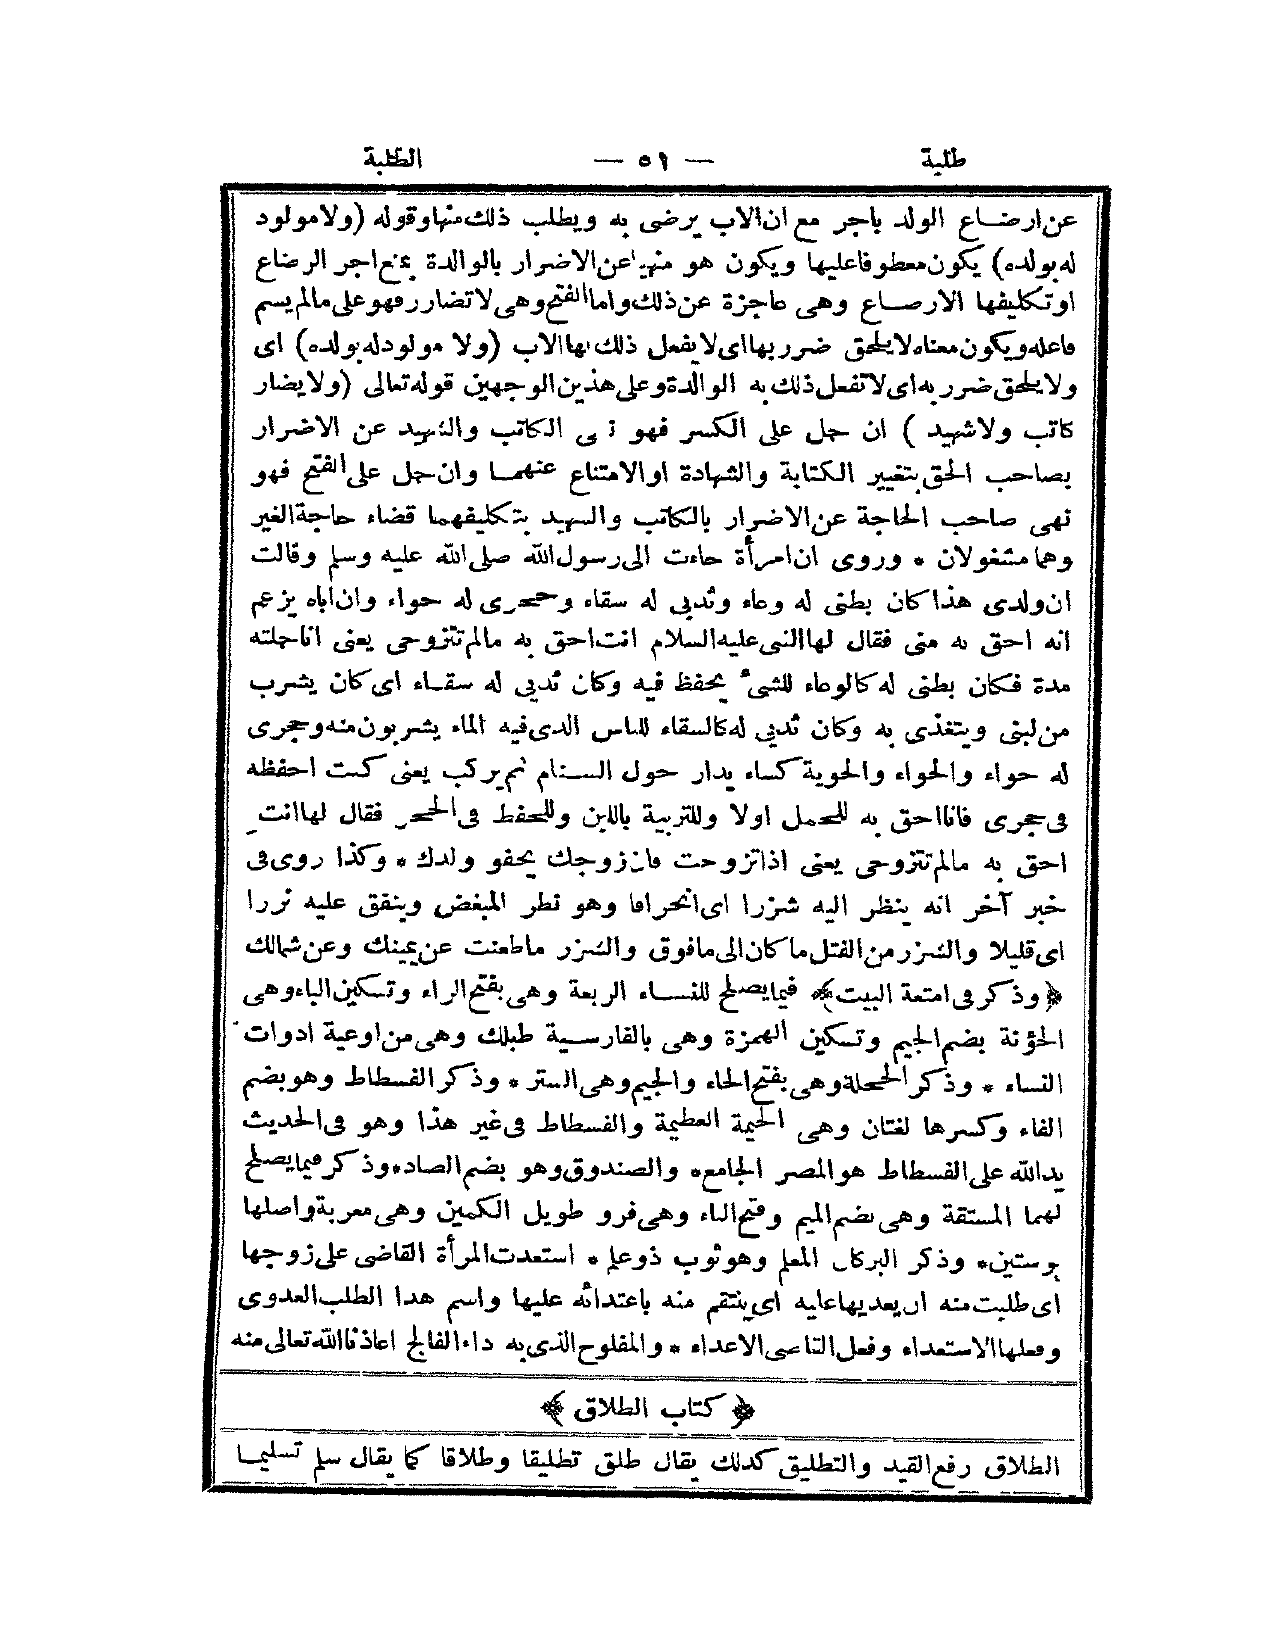 طلبة — ٥١ — الطلبة
عن ارضاع الولد باجر مع ان الاب يرضى به ويطلب ذلك منها وقوله (ولا مولود
له بولده) يكون معطوفا عليها ويكون هو منهيا عن الاضرار بالوالدة بمنع اجر الرضاع
او تكليفها الارضاع وهى عاجزة عن ذلك واما الفتح وهى لا تضارر فهو على مالم يسم
فاعله ويكون معناه لا يلحق ضرر بها اى لا يفعل ذلك بها الاب (ولا مولود له بولده) اى
ولا يلحق ضرر به اى لا تفعل ذلك به الوالدة وعلى هذين الوجهين قوله تعالى (ولا يضار
كاتب ولا شهيد) ان حمل على الكسر فهو نهى الكاتب والشهيد عن الاضرار
بصاحب الحق بتغيير الكتابة والشهادة او الامتناع عنهما وان حمل على الفتح فهو
نهى صاحب الحاجة عن الاضرار بالكاتب والشهيد بتكليفهما قضاء حاجة الغير
وهما مشغولان * وروى ان امرأة جاءت الى رسول الله صلى الله عليه وسلم وقالت
ان ولدى هذا كان بطنى له وعاء وثديى له سقاء وحجرى له حواء وان اباه يزعم
انه احق به منى فقال لها النبى عليه السلام انت احق به مالم تتزوجى يعنى انا حملته
مدة فكان بطنى له كالوعاء للشئ يحفظ فيه وكان ثديى له سقاء اى كان يشرب
من لبنى ويتغذى به وكان ثديى له كالسقاء للناس الذى فيه الماء يشربون منه وحجرى
له حواء والحواء والحوية كساء يدار حول السنام ثم يركب يعنى كنت احفظه
فى حجرى فانا احق به للحمل اولا وللتربية باللبن وللحفظ فى الحجر فقال لها انت
احق به مالم تتزوجى يعنى اذا تزوجت فان زوجك يجفو ولدك * وكذا روى فى
خبر آخر انه ينظر اليه شزرا اى انحرافا وهو نظر المبغض وينفق عليه نزرا
اى قليلا والشزر من الفتل ما كان الى ما فوق والشزر ما طعنت عن يمينك وعن شمالك
﴿ وذكر فى امتعة البيت ﴾ فيما يصلح للنساء الربعة وهى بفتح الراء وتسكين الباء وهى
الجؤنة بضم الجيم وتسكين الهمزة وهى بالفارسية طبلك وهى من اوعية ادوات
النساء * وذكر الحجلة وهى بفتح الحاء والجيم وهى الستر * وذكر الفسطاط وهو بضم
الفاء وكسرها لغتان وهى الخيمة العظيمة والفسطاط فى غير هذا وهو فى الحديث
يد الله على الفسطاط هو المصر الجامع * والصندوق وهو بضم الصاد * وذكر فيما يصلح
لهما المستقة وهى بضم الميم وفتح التاء وهى فرو طويل الكمين وهى معربة واصلها
پوستين * وذكر البركان المعلم وهو ثوب ذو علم * استعدت المرأة القاضى على زوجها
اى طلبت منه ان يعديها عليه اى ينتقم منه باعتدائه عليها واسم هذا الطلب العدوى
وفعلها الاستعداء وفعل القاضى الاعداء * والمفلوج الذى به داء الفالج اعاذنا الله تعالى منه
﴿ كتاب الطلاق ﴾
الطلاق رفع القيد والتطليق كذلك يقال طلق تطليقا وطلاقا كما يقال سلم تسليما